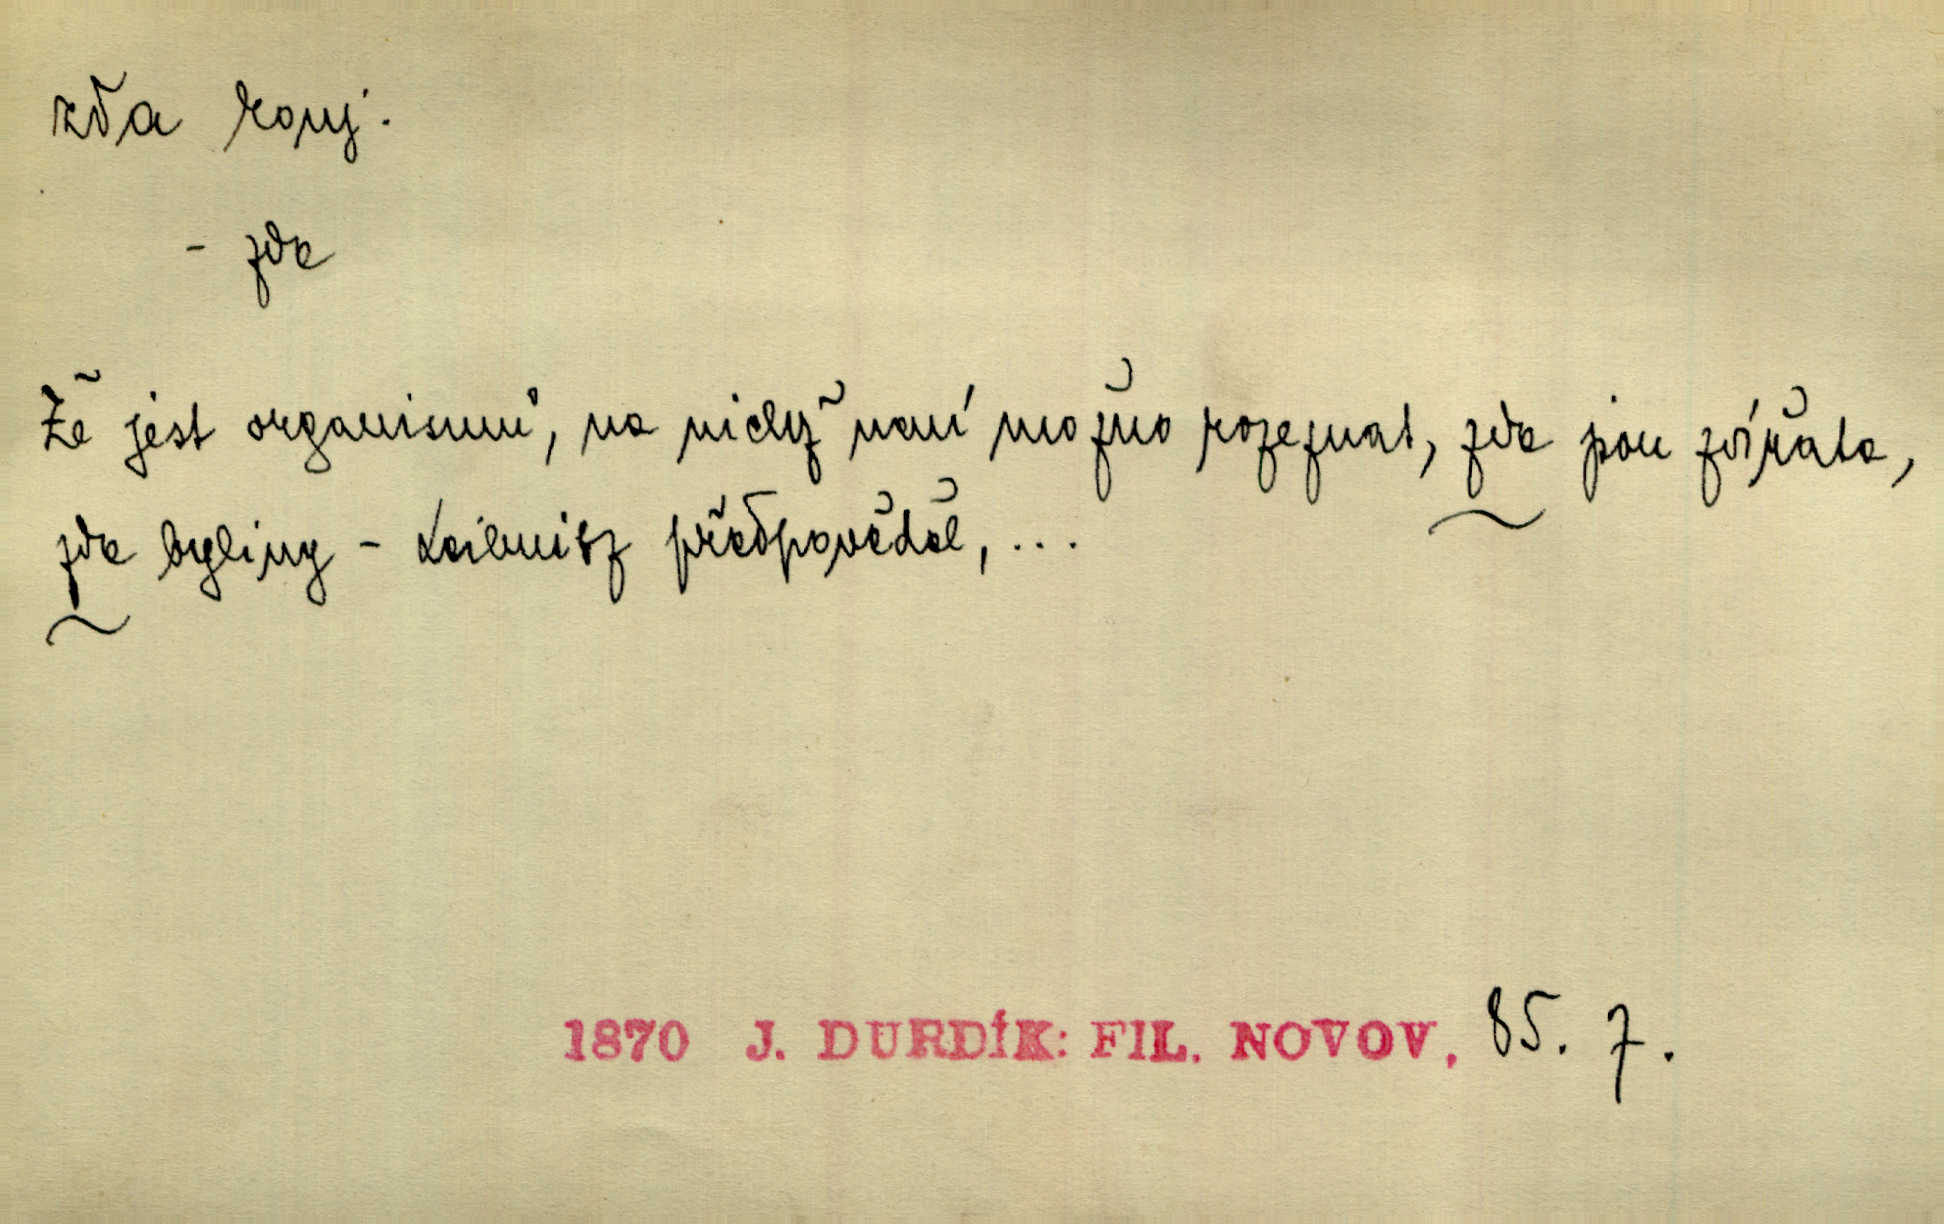 zda konj.
- zda
Že jest organismů, na nichž není možno rozeznat, zda jsou zvířata,
zda byliny - Leibnitz předpověděl, ...
1870 J. DURDÍK: FIL. NOVOV. 85. 7.